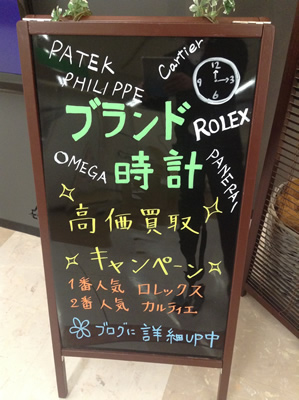 PATEK
PHILIPPE
Cartier
12
9
3
6
ブランド
ROLEX
OMEGA
時計
PANERAI
高価買取
キャンペーン
1番人気 ロレックス
2番人気 カルティエ
ブログに詳細UP中